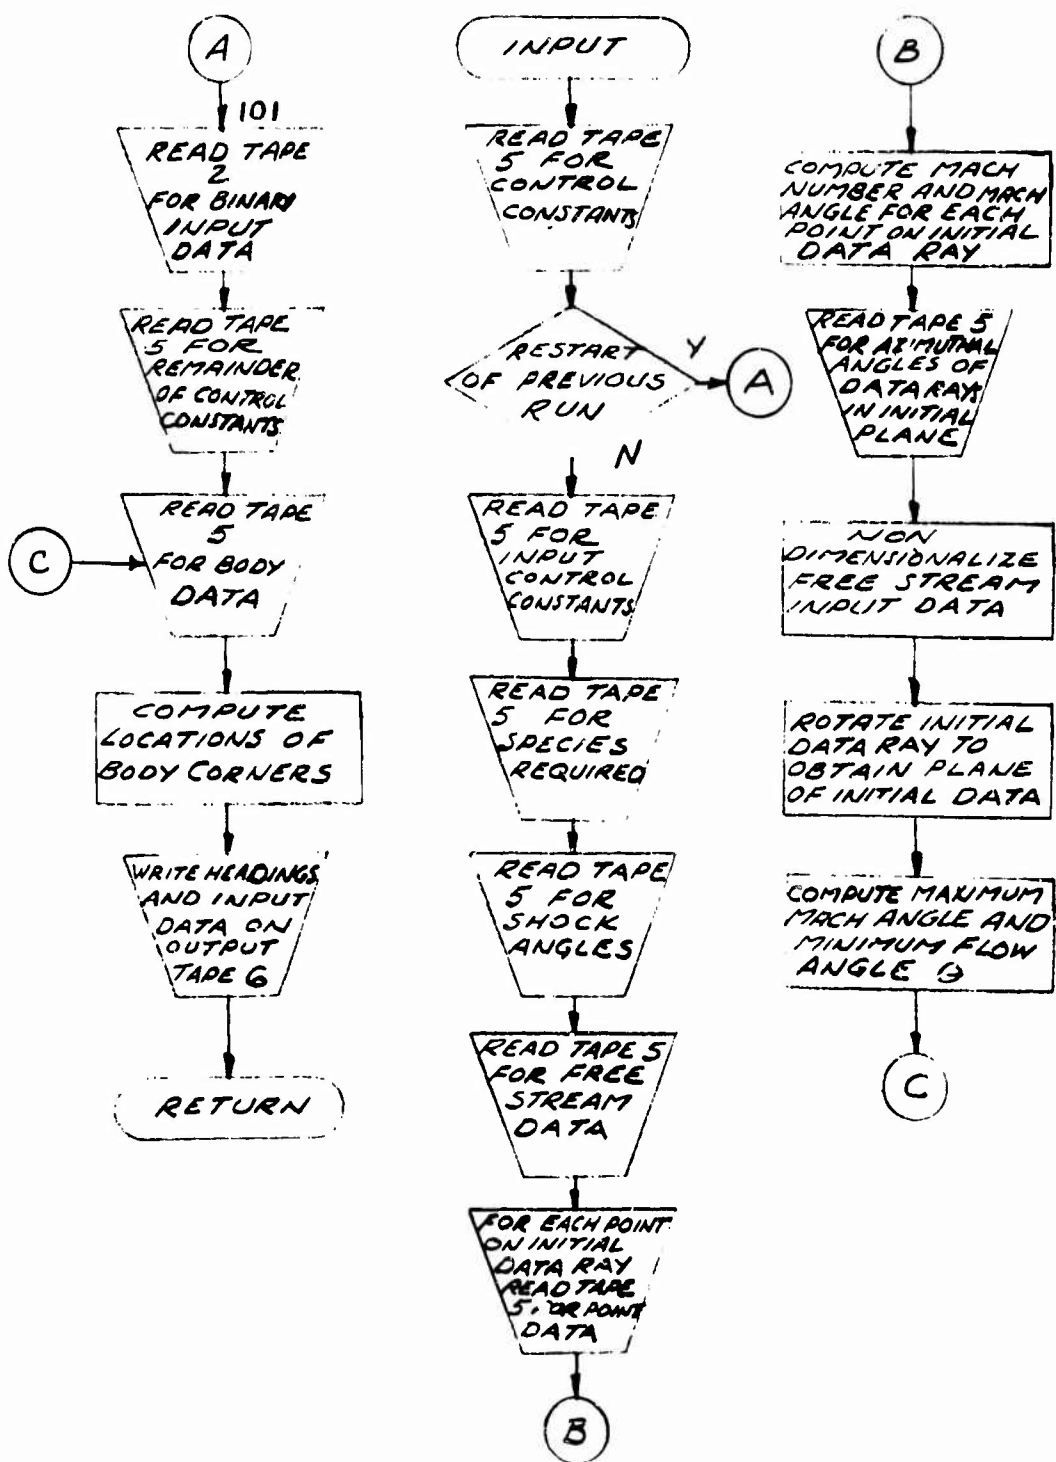 A
101
READ TAPE
2
FOR BINARY
INPUT
DATA
READ TAPE
5 FOR
REMAINDER
OF CONTROL
CONSTANTS
C
READ TAPE
5
FOR BODY
DATA
COMPUTE
LOCATIONS OF
BODY CORNERS
WRITE HEADINGS
AND INPUT
DATA ON
OUTPUT
TAPE 6
RETURN
INPUT
READ TAPE
5 FOR
CONTROL
CONSTANTS
RESTART
OF PREVIOUS
RUN
Y
A
N
READ TAPE
5 FOR
INPUT
CONTROL
CONSTANTS
READ TAPE
5 FOR
SPECIES
REQUIRED
READ TAPE
5 FOR
SHOCK
ANGLES
READ TAPE 5
FOR FREE
STREAM
DATA
FOR EACH POINT
ON INITIAL
DATA RAY
READ TAPE
5 POINT
DATA
B
B
COMPUTE MACH
NUMBER AND MACH
ANGLE FOR EACH
POINT ON INITIAL
DATA RAY
READ TAPE 5
FOR AZIMUTHAL
ANGLES OF
DATA RAYS
IN INITIAL
PLANE
NON
DIMENSIONALIZE
FREE STREAM
INPUT DATA
ROTATE INITIAL
DATA RAY TO
OBTAIN PLANE
OF INITIAL DATA
COMPUTE MAXIMUM
MACH ANGLE AND
MINIMUM FLOW
ANGLE
C